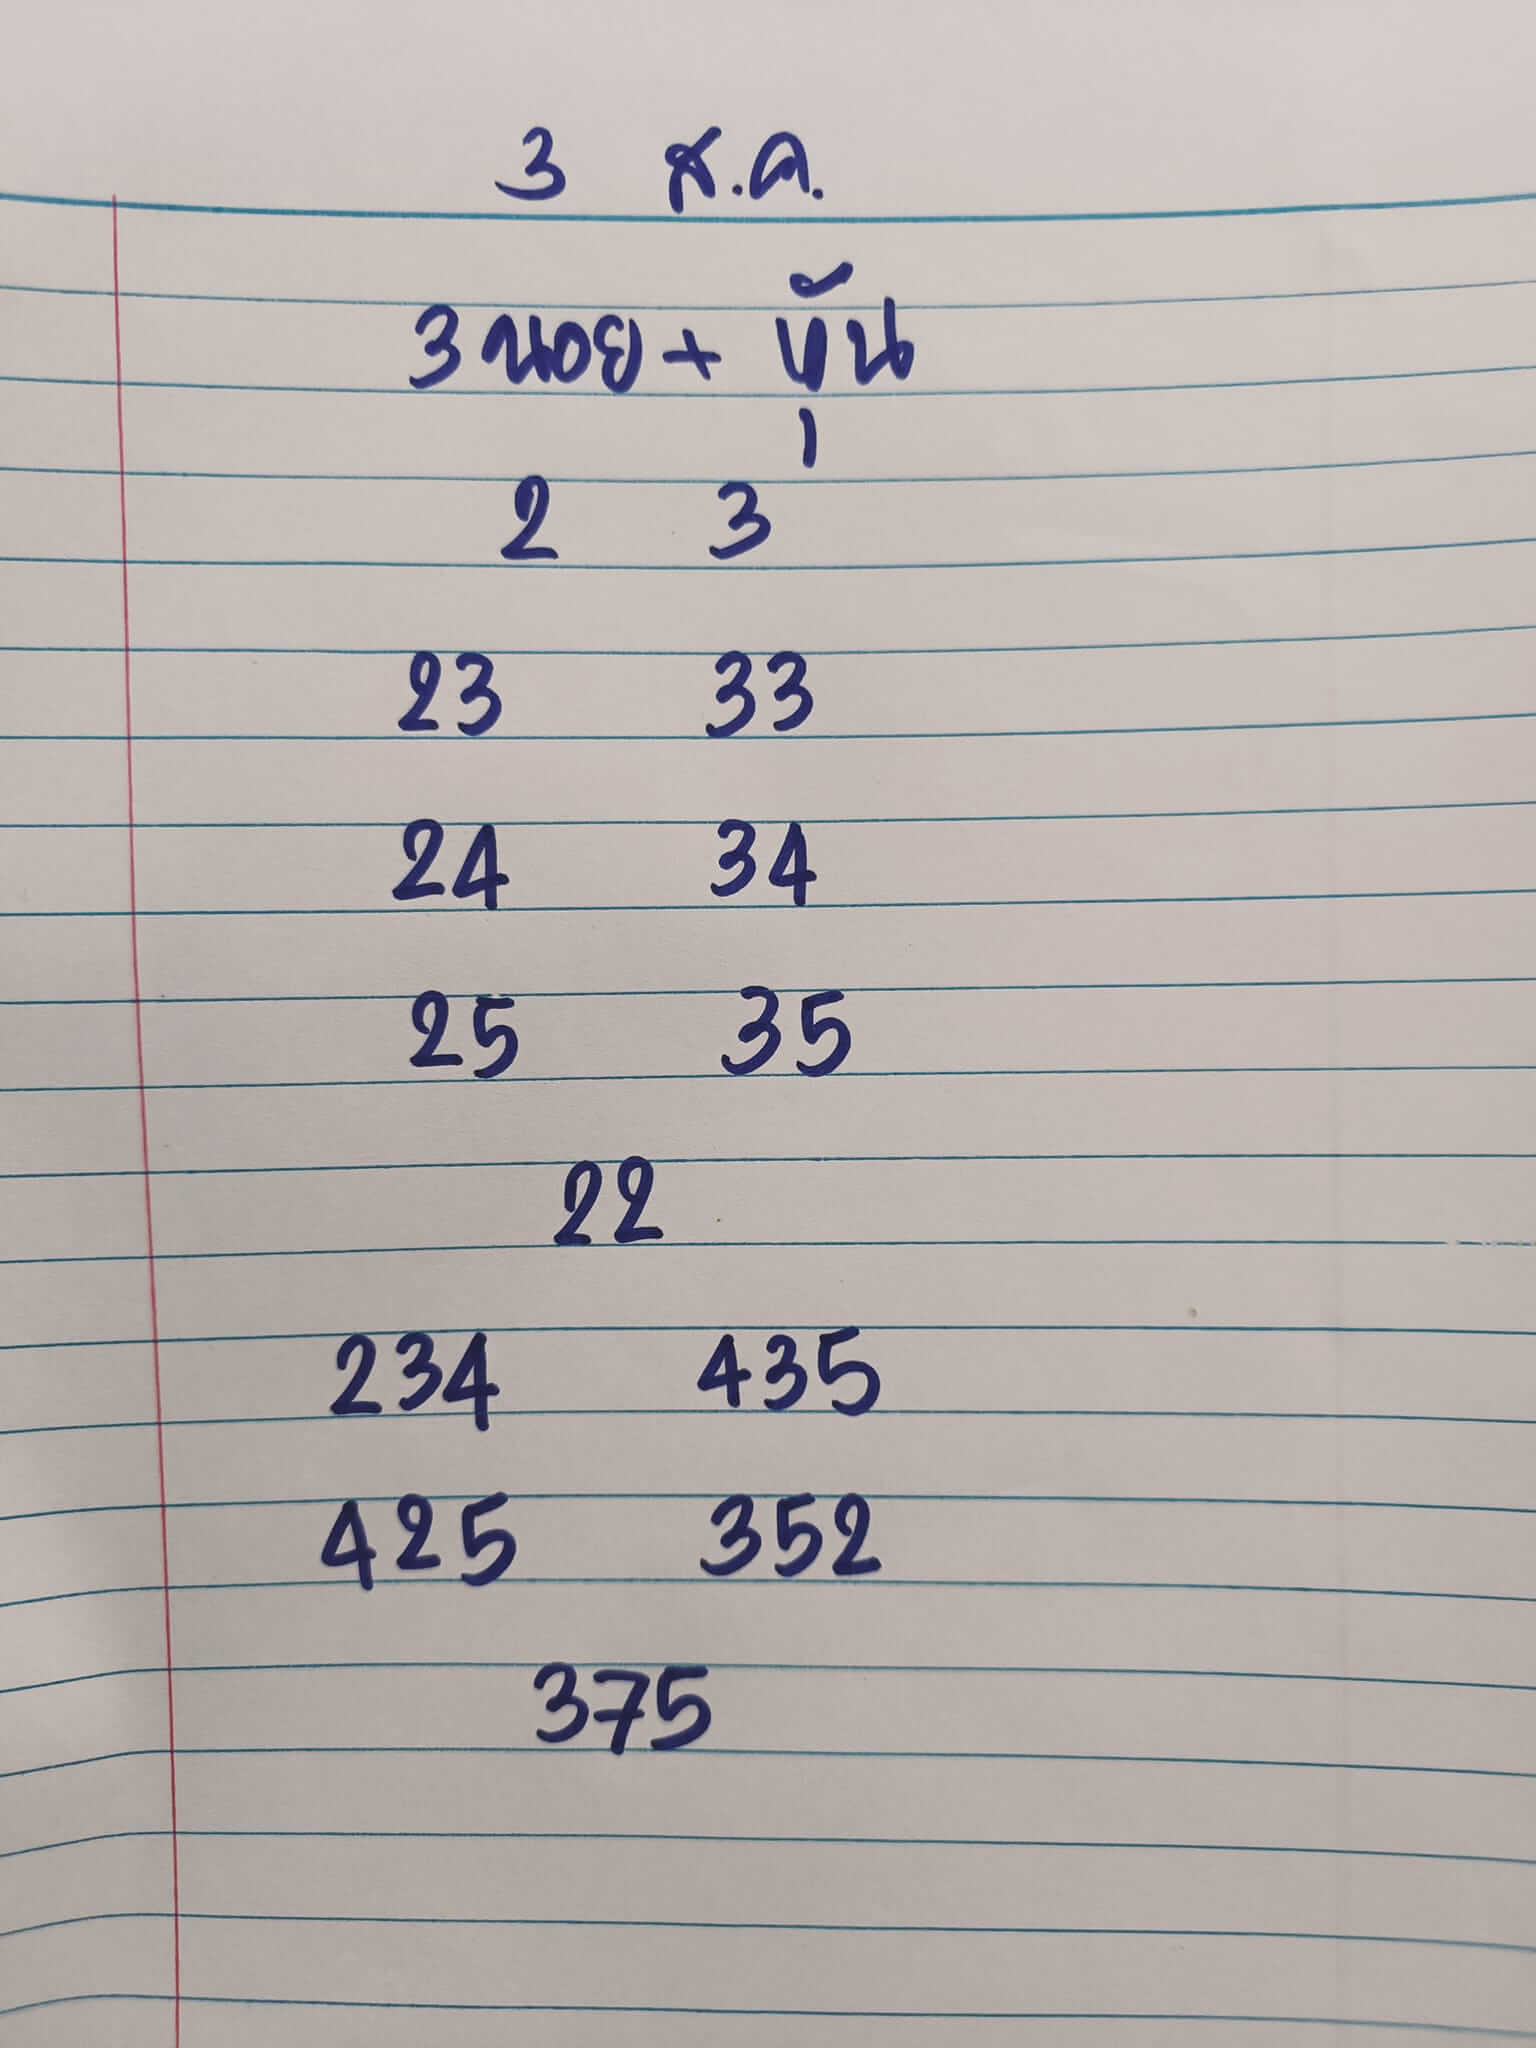 3 ส.ค.
3 นอย + หุ้น
2 3
23 33
24 34
25 35
22
234 435
425 352
375